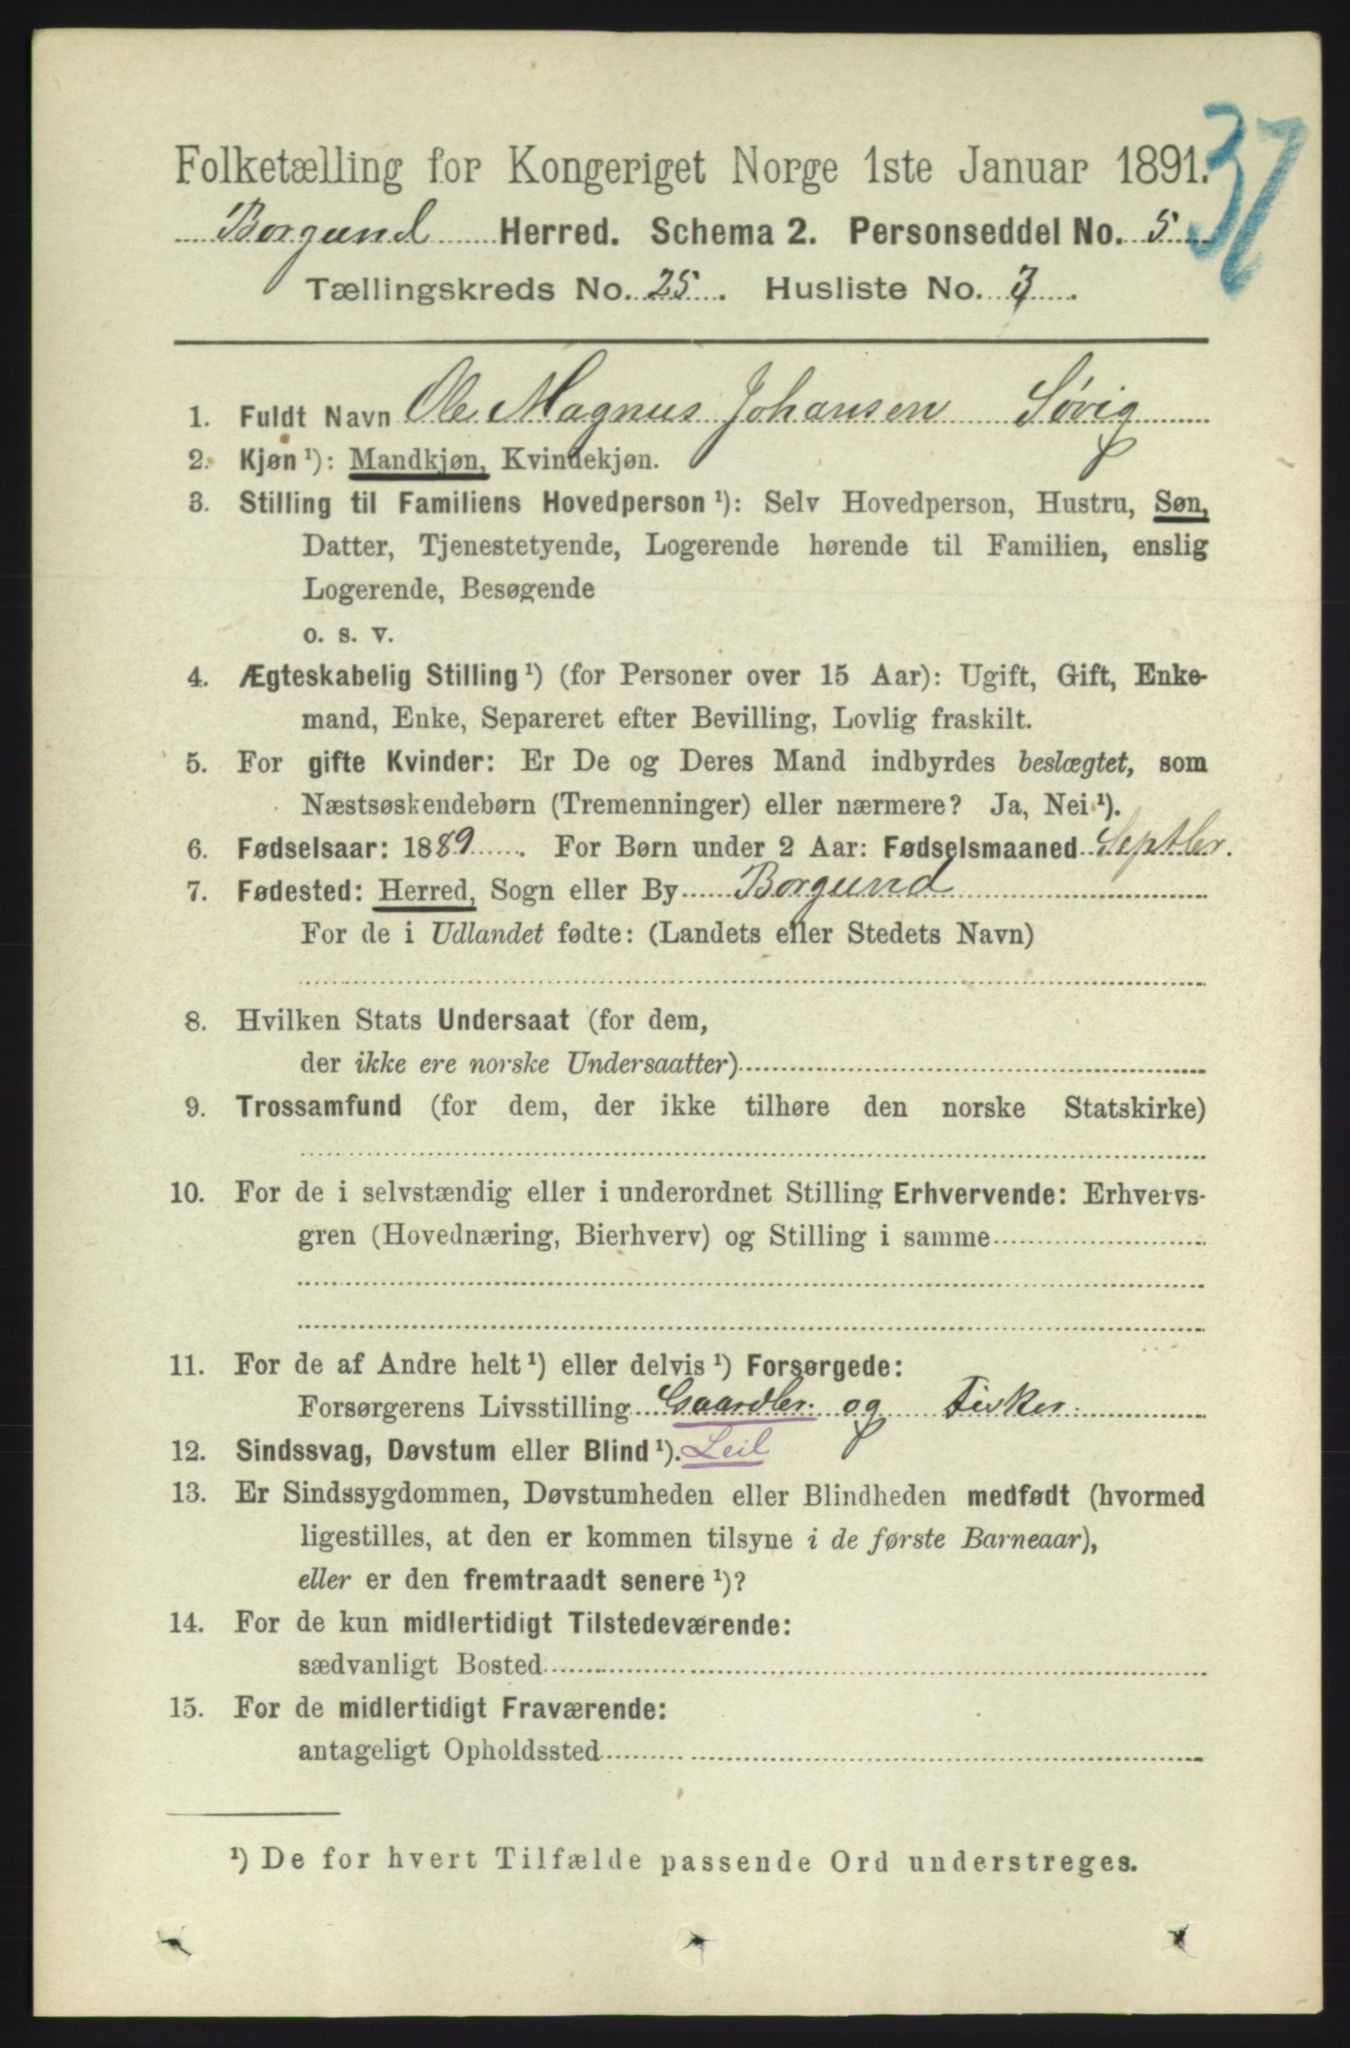 37
Folketælling for Kongeriget Norge 1ste Januar 1891.
Borgund Herred. Schema 2. Personseddel No. 5
Tællingskreds No. 25. Husliste No. 3.
1. Fuldt Navn Ole Magnus Johansen Søvig
2. Kjøn ¹): Mandkjøn, Kvindekjøn.
3. Stilling til Familiens Hovedperson ¹): Selv Hovedperson, Hustru, Søn,
Datter, Tjenestetyende, Logerende hørende til Familien, enslig
Logerende, Besøgende
o. s. v.
4. Ægteskabelig Stilling ¹) (for Personer over 15 Aar): Ugift, Gift, Enke-
mand, Enke, Separeret efter Bevilling, Lovlig fraskilt.
5. For gifte Kvinder: Er De og Deres Mand indbyrdes beslægtet, som
Næstsøskendebørn (Tremenninger) eller nærmere? Ja, Nei ¹).
6. Fødselsaar: 1889. For Børn under 2 Aar: Fødselsmaaned Septbr.
7. Fødested: Herred, Sogn eller By Borgund
For de i Udlandet fødte: (Landets eller Stedets Navn)
8. Hvilken Stats Undersaat (for dem,
der ikke ere norske Undersaatter)
9. Trossamfund (for dem, der ikke tilhøre den norske Statskirke)
10. For de i selvstændig eller i underordnet Stilling Erhvervende: Erhvervs-
gren (Hovednæring, Bierhverv) og Stilling i samme
11. For de af Andre helt ¹) eller delvis ¹) Forsørgede:
Forsørgerens Livsstilling Gaardbr. og Fisker.
12. Sindssvag, Døvstum eller Blind ¹). Leil
13. Er Sindssygdommen, Døvstumheden eller Blindheden medfødt (hvormed
ligestilles, at den er kommen tilsyne i de første Barneaar),
eller er den fremtraadt senere ¹)?
14. For de kun midlertidigt Tilstedeværende:
sædvanligt Bosted
15. For de midlertidigt Fraværende:
antageligt Opholdssted
¹) De for hvert Tilfælde passende Ord understreges.